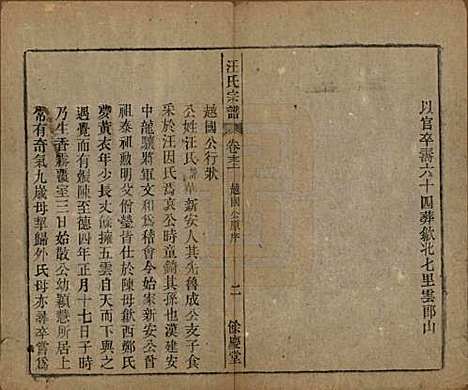 以官卒壽六十四葬歙北七里雲郎山
汪氏宗譜
卷三
越國公原序
二
餘慶堂
越國公行狀
公姓汪氏諱華新安人其先魯成公支子食
采於汪因氏焉哀公時童錡其孫也漢建安
中龍驤將軍文和為會稽令始家新安公曾
祖泰祖勳明父僧瑩仕於陳母歙西鄭氏
夢黃衣年少長丈餘擁五雲自天而下與之
遇覺而有娠陳至德四年正月十七日子時
乃生香霧覆室三日始散公幼穎慧所居上
常有奇氣九歲母華歸外氏母亦尋卒嘗為